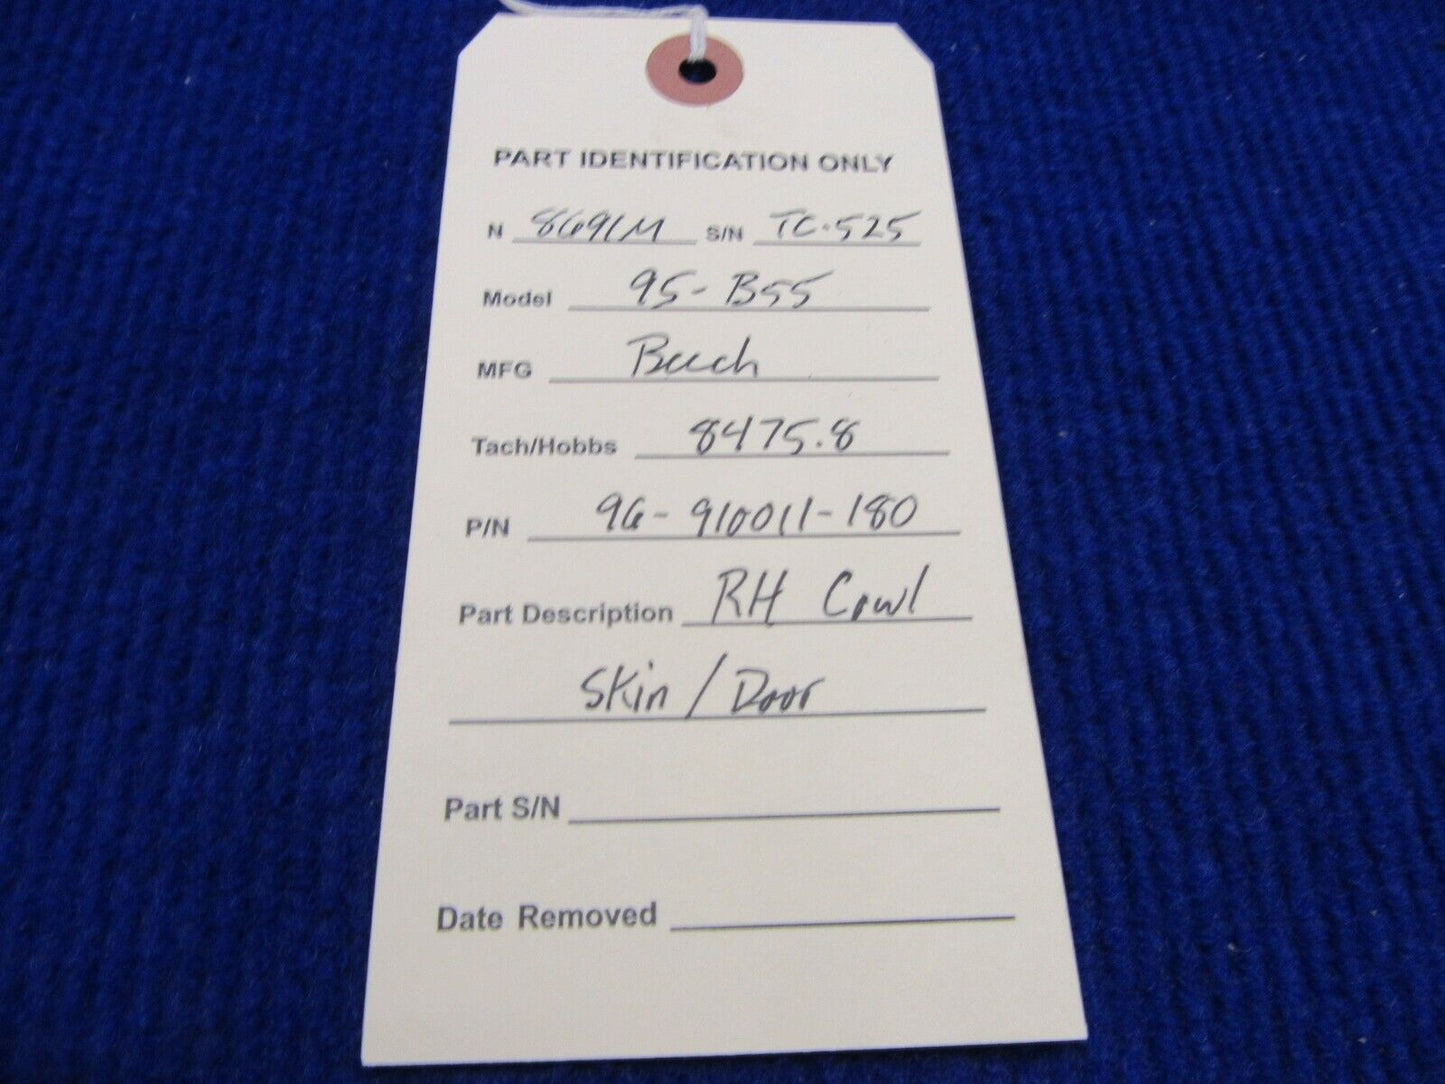 PART IDENTIFICATION ONLY
N 8691M S/N TC-525
Model 95-B55
MFG Beech
Tach/Hobbs 8475.8
P/N 96-910011-180
Part Description RH Cowl
Skin / Door
Part S/N
Date Removed